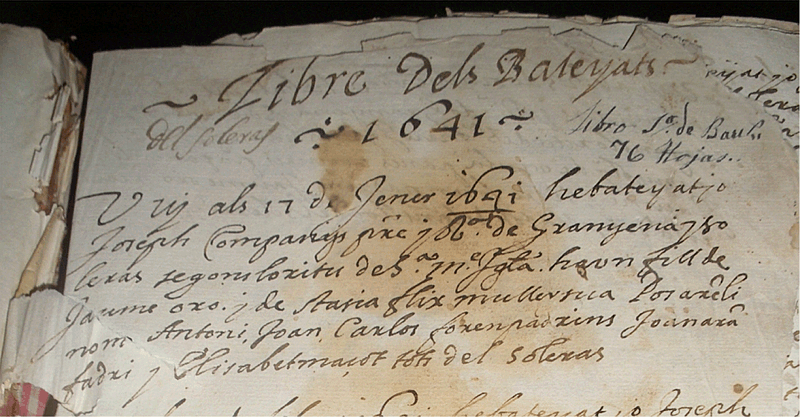 Libre Dels Bateyats
del soleras
1641
Libro 1º. de Baut.
76 Hojas.
Vuy als 17 de Jener 1641 he bateyat jo
Joseph Companys pre y Rr. de Granyena y so
leras segons lo ritu de s.ª m.e Iglª. ha un fill de
Jaume oro. y de Stasia flix muller sua Posareli
nom Antoni, Joan, Carlos foren padrins Joan ara
fadri y Elisabet maçot tots del soleras
he bateyat jo Joseph